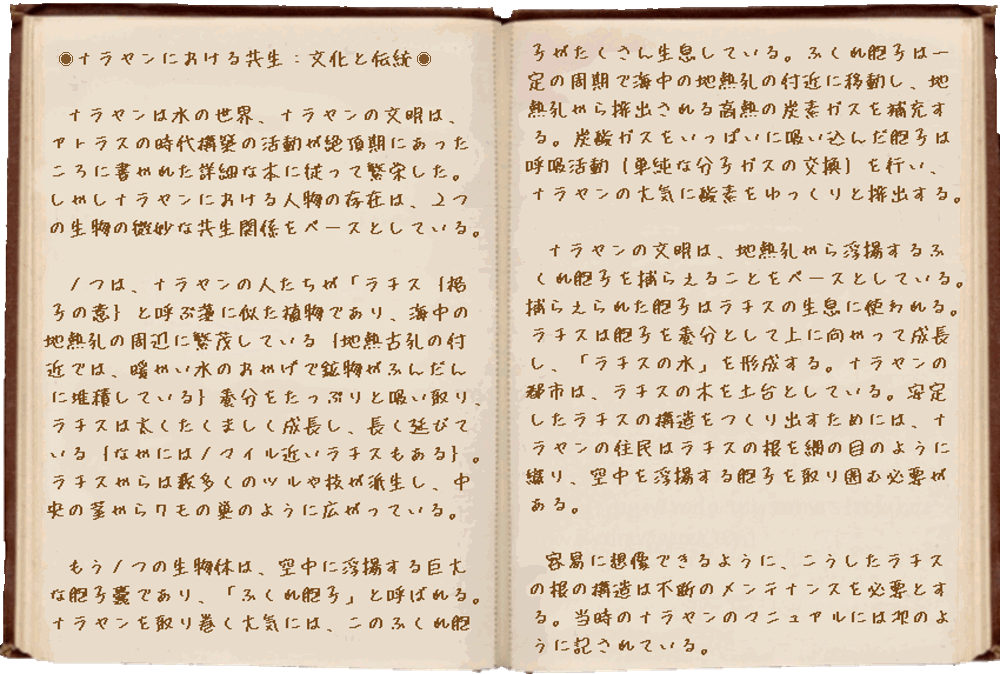 ◉ナラヤンにおける共生：文化と伝統◉
ナラヤンは水の世界、ナラヤンの文明は、
アトラスの時代構築の活動が絶頂期にあった
ころに書かれた詳細な本に従って繁栄した。
しかしナラヤンにおける人物の存在は、2つ
の生物の微妙な共生関係をベースとしている。
1つは、ナラヤンの人たちが「ラチス{格
子の意}と呼ぶ藻に似た植物であり、海中の
地熱乳の周辺に繁茂している{地熱古乳の付
近では、暖かい水のおかげで鉱物がふんだん
に堆積している}養分をたっぷりと吸い取り、
ラチスは太くたくましく成長し、長く延びて
いる{なかには1マイル近いラチスもある}。
ラチスからは数多くのツルや枝が派生し、中
央の茎からクモの巣のように広がっている。
もう1つの生物体は、空中に浮揚する巨大
な胞子嚢であり、「ふくれ胞子」と呼ばれる。
ナラヤンを取り巻く大気には、このふくれ胞
子がたくさん生息している。ふくれ胞子は一
定の周期で海中の地熱孔の付近に移動し、地
熱孔から排出される高熱の炭素ガスを補充す
る。炭酸ガスをいっぱいに吸い込んだ胞子は
呼吸活動{単純な分子ガスの交換}を行い、
ナラヤンの大気に酸素をゆっくりと排出する。
ナラヤンの文明は、地熱孔から浮揚するふ
くれ胞子を捕らえることをベースとしている。
捕らえられた胞子はラチスの生息に使われる。
ラチスは胞子を養分として上に向かって成長
し、「ラチスの木」を形成する。ナラヤンの
都市は、ラチスの木を土台としている。安定
したラチスの構造をつくり出すためには、ナ
ラヤンの住民はラチスの根を網の目のように
織り、空中を浮揚する胞子を取り囲む必要が
ある。
容易に想像できるように、こうしたラチス
の根の構造は不断のメンテナンスを必要とす
る。当時のナラヤンのマニュアルには次のよ
うに記されている。